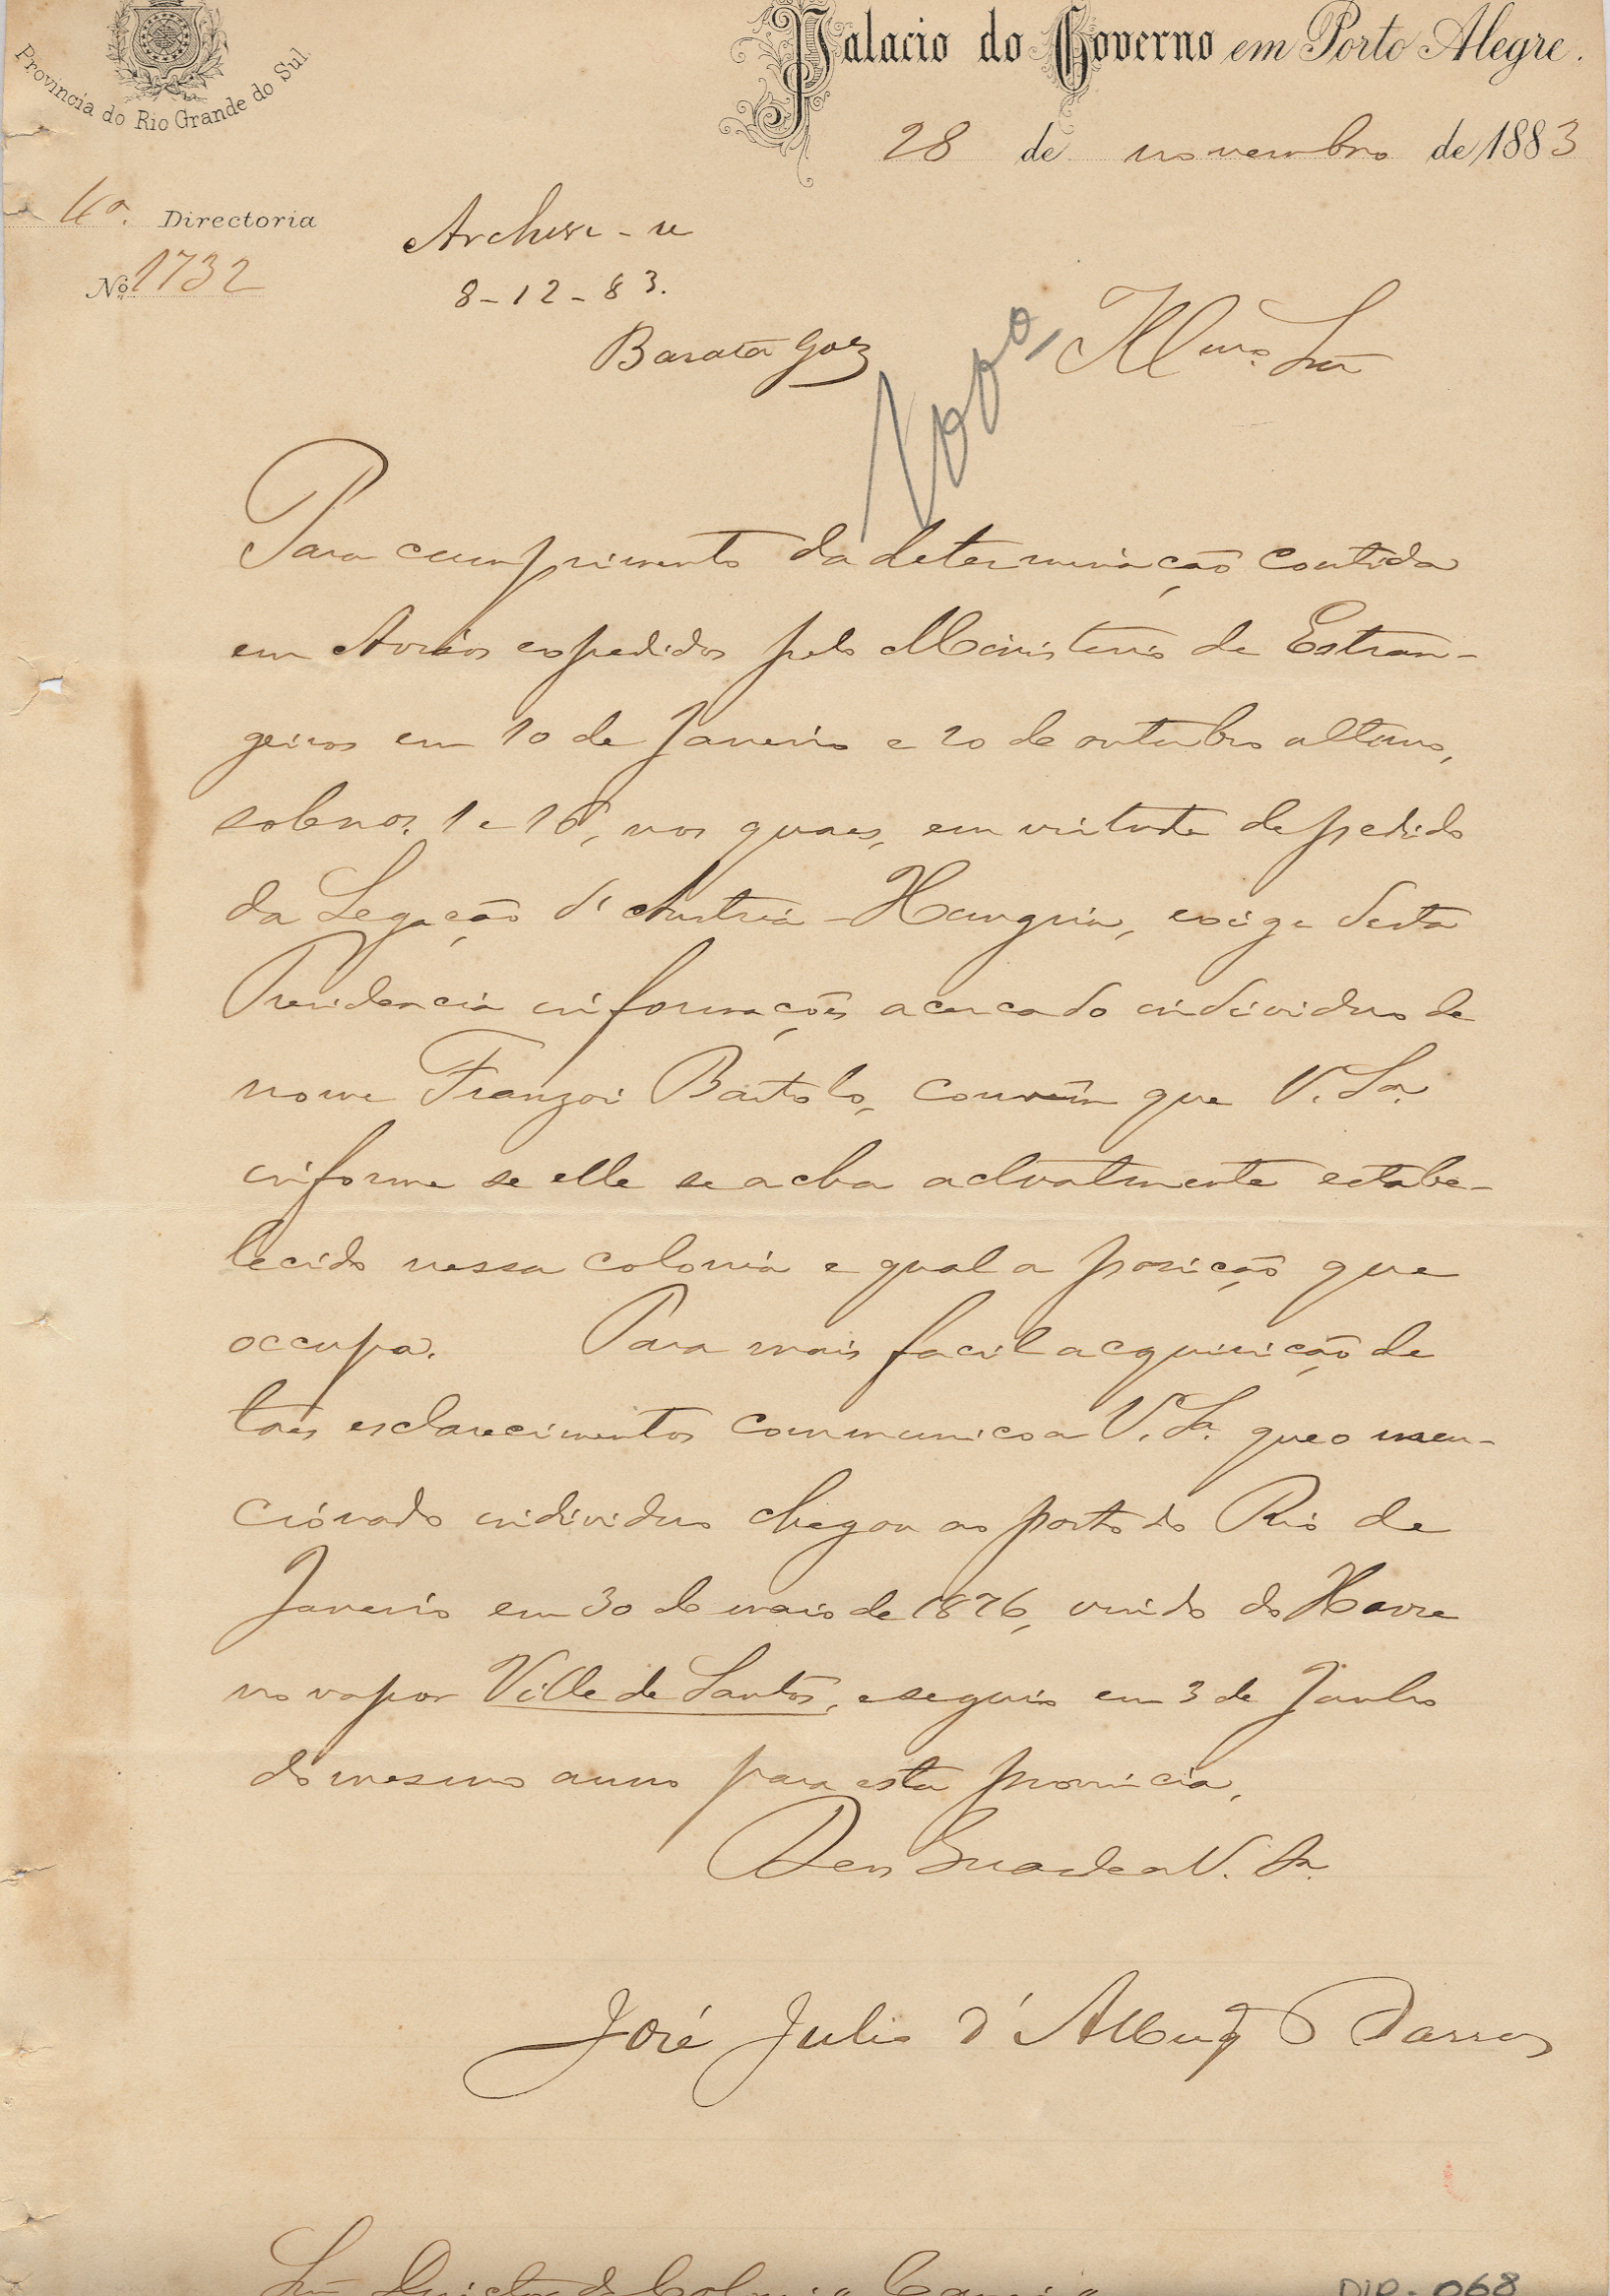 Provincia do Rio Grande do Sul
Palacio do Governo em Porto Alegre.
28 de novembro de 1883
4ª. Directoria
Nº 1732
Archive-se
8-12-83.
Barata Goes
Illmo. Snr
Para cumprimento da determinação contida
em Avisos expedidos pelo Ministerio de Estran-
geiros em 10 de Janeiro e 20 de outubro ultimo,
sob nos. 1 e 16, nos quaes, em virtude de pedido
da Legação d'Austria-Hungria, exige desta
Presidencia informações acerca do individuo de
nome Franzoi Bartolo, convém que V. Sa.
informe se elle se acha actualmente estabe-
lecido nessa colonia e qual a posição que
occupa. Para mais facil acquisição de
taes esclarecimentos communico a V. Sa. que o men-
cionado individuo chegou ao porto do Rio de
Janeiro em 30 de maio de 1876, vindo do Havre
no vapor Ville de Santos, e seguio em 3 de Junho
do mesmo anno para esta provincia.
Deus Guarde a V. Sa.
José Julio d'Albuqe Barros
Snr Director da Colonia Caxias
DIR-068